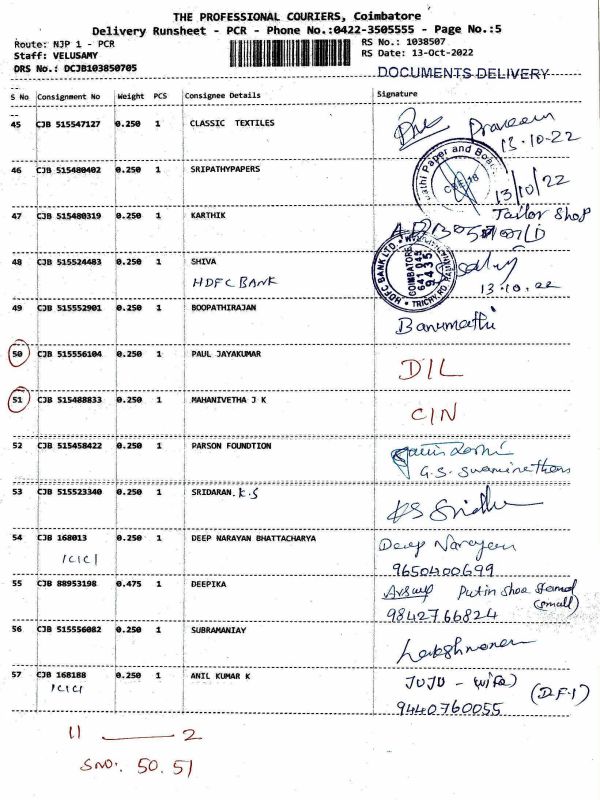 THE PROFESSIONAL COURIERS, Coimbatore
Delivery Runsheet - PCR - Phone No.:0422-3505555 - Page No.:5
Route: NJP 1 - PCR RS No.: 1038507
Staff: VELUSAMY RS Date: 13-Oct-2022
DRS No.: DCJB103850705 DOCUMENTS DELIVERY
S No Consignment No Weight PCS Consignee Details Signature
45 CJB 515547127 0.250 1 CLASSIC TEXTILES Praveen
13-10-22
46 CJB 515480402 0.250 1 SRIPATHYPAPERS
13/10/22
47 CJB 515480319 0.250 1 KARTHIK Tailor Shop
48 CJB 515524483 0.250 1 SHIVA
HDFC BANK 13.10.22
HDFC BANK LTD. COIMBATORE 641 045 9435 TRICHY RD
49 CJB 515552901 0.250 1 BOOPATHIRAJAN Banumathi
50 CJB 515556104 0.250 1 PAUL JAYAKUMAR D/L
51 CJB 515488833 0.250 1 MAHANIVETHA J K C/N
52 CJB 515458422 0.250 1 PARSON FOUNDTION
G.S. Swaminathan
53 CJB 515523340 0.250 1 SRIDARAN.K.S KS Sridhar
54 CJB 168013 0.250 1 DEEP NARAYAN BHATTACHARYA Deep Narayan
ICICI 9650400699
55 CJB 88953198 0.475 1 DEEPIKA Put in Shoe Stand
(small)
9842766824
56 CJB 515556082 0.250 1 SUBRAMANIAY Lakshmanan
57 CJB 168188 0.250 1 ANIL KUMAR K JUJU - (wife)
ICICI (D.F-1)
9440760055
11 — 2
S.NO:. 50.51